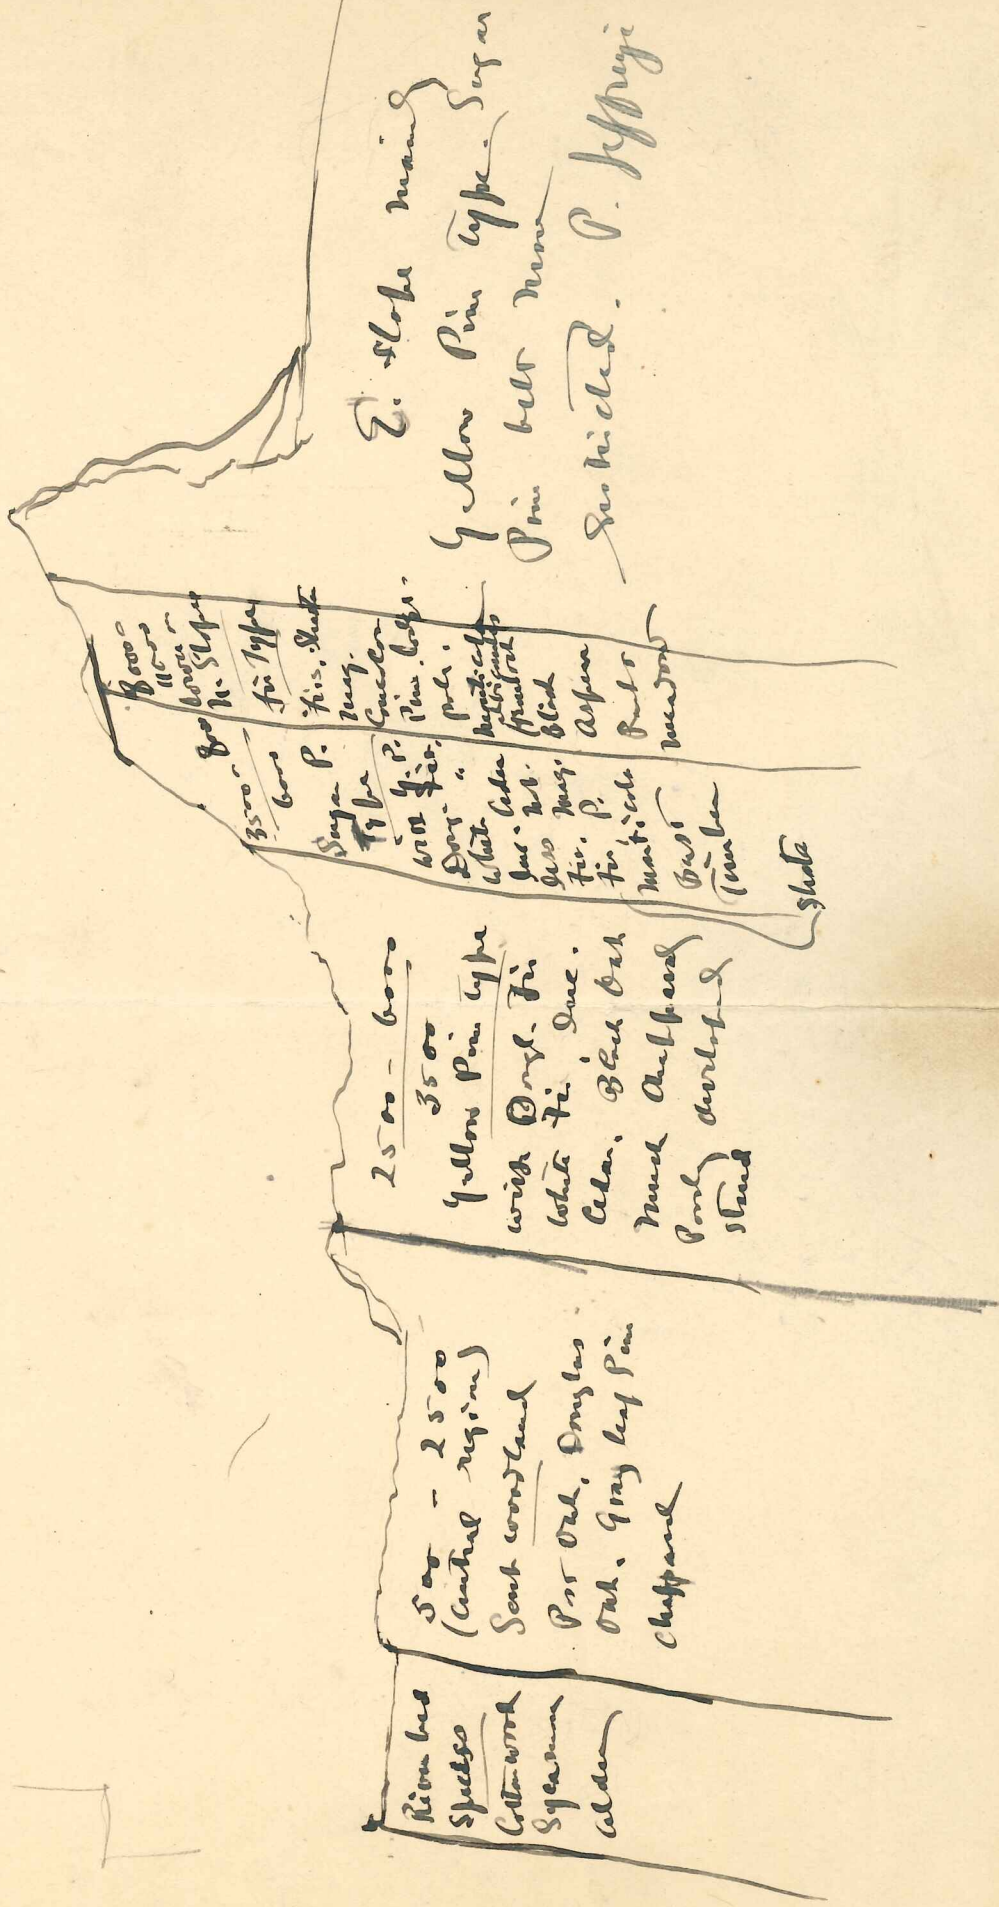 River bed
Species
Cottonwood
Sycamore
alder
500 - 2500
(Central region)
Semi woodland
Post Oak, Douglas
Oak. Gray leaf Pine
Chapparal
2500 - 6000
3500
Yellow Pine type
with Dougl. Fir
White Fir, Inc.
Cedar. Black Oak
Much Chapparal
Poorly developed
stand
3500 - 8000
6000
Sugar P.
Type
with Y. P.
Doug. Fir.
White "
Inc. Cedar
less
Fir. P.
Monticola
Best
Timber
Shasta
8000 -
lower -
N. Slope
Fir Type
Fir. Shasta
Mag.
Concolor
Pine. Lodge.
Pole.
Monticola
albicaulis
Hemlock
Black
Aspen
meadow
E. Slope mainly
Yellow Pine type. Sugar
Pine belt more
restricted. P. Jeffreyi